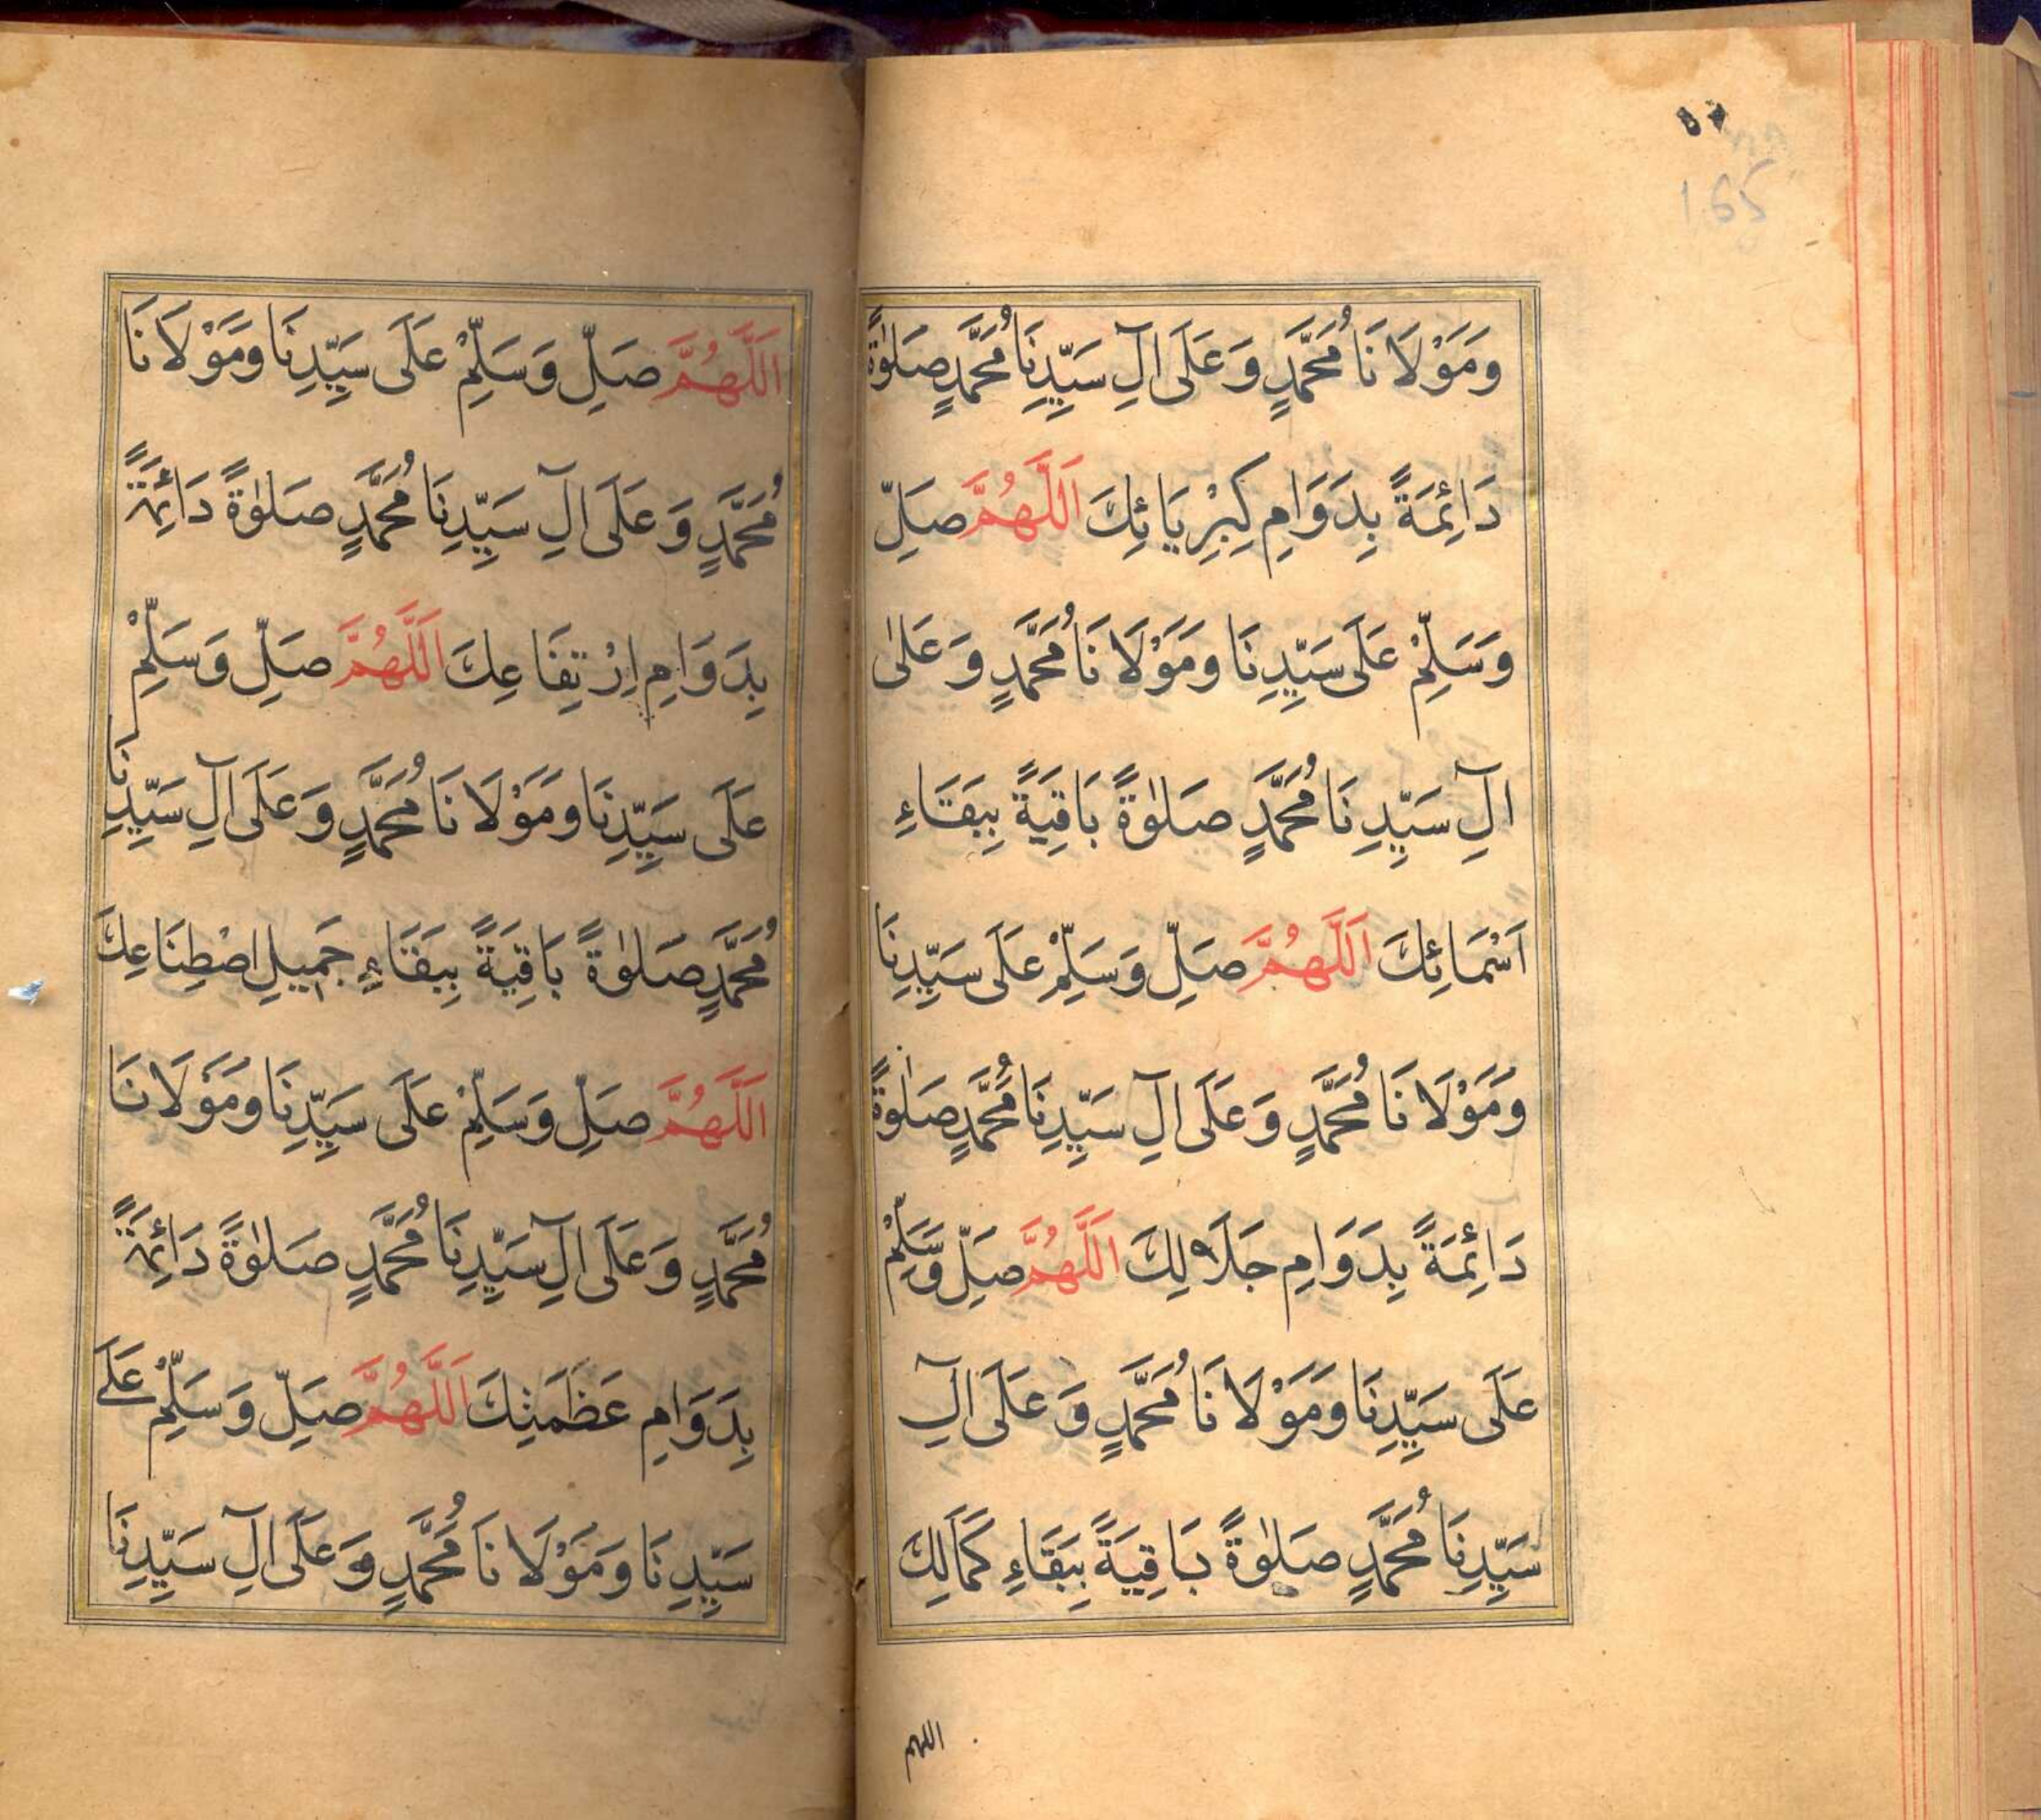 165
وَمَوْلَانَا مُحَمَّدٍ وَعَلَى اٰلِ سَيِّدِنَا مُحَمَّدٍ صَلٰوةً
دَائِمَةً بِدَوَامِ كِبْرِيَائِكَ اَللّٰهُمَّ صَلِّ
وَسَلِّمْ عَلَى سَيِّدِنَا وَمَوْلَانَا مُحَمَّدٍ وَعَلٰى
اٰلِ سَيِّدِنَا مُحَمَّدٍ صَلٰوةً بَاقِيَةً بِبَقَاءِ
اَسْمَائِكَ اَللّٰهُمَّ صَلِّ وَسَلِّمْ عَلَى سَيِّدِنَا
وَمَوْلَانَا مُحَمَّدٍ وَعَلَى اٰلِ سَيِّدِنَا مُحَمَّدٍ صَلٰوةً
دَائِمَةً بِدَوَامِ جَلَالِكَ اَللّٰهُمَّ صَلِّ وَسَلِّمْ
عَلَى سَيِّدِنَا وَمَوْلَانَا مُحَمَّدٍ وَعَلَى اٰلِ
سَيِّدِنَا مُحَمَّدٍ صَلٰوةً بَاقِيَةً بِبَقَاءِ كَمَالِكَ
اللهم
اَللّٰهُمَّ صَلِّ وَسَلِّمْ عَلَى سَيِّدِنَا وَمَوْلَانَا
مُحَمَّدٍ وَعَلَى اٰلِ سَيِّدِنَا مُحَمَّدٍ صَلٰوةً دَائِمَةً
بِدَوَامِ اِرْتِفَاعِكَ اَللّٰهُمَّ صَلِّ وَسَلِّمْ
عَلَى سَيِّدِنَا وَمَوْلَانَا مُحَمَّدٍ وَعَلَى اٰلِ سَيِّدِنَا
مُحَمَّدٍ صَلٰوةً بَاقِيَةً بِبَقَاءِ جَمِيلِ اصْطِنَاعِكَ
اَللّٰهُمَّ صَلِّ وَسَلِّمْ عَلَى سَيِّدِنَا وَمَوْلَانَا
مُحَمَّدٍ وَعَلَى اٰلِ سَيِّدِنَا مُحَمَّدٍ صَلٰوةً دَائِمَةً
بِدَوَامِ عَظَمَتِكَ اَللّٰهُمَّ صَلِّ وَسَلِّمْ عَلَى
سَيِّدِنَا وَمَوْلَانَا مُحَمَّدٍ وَعَلَى اٰلِ سَيِّدِنَا